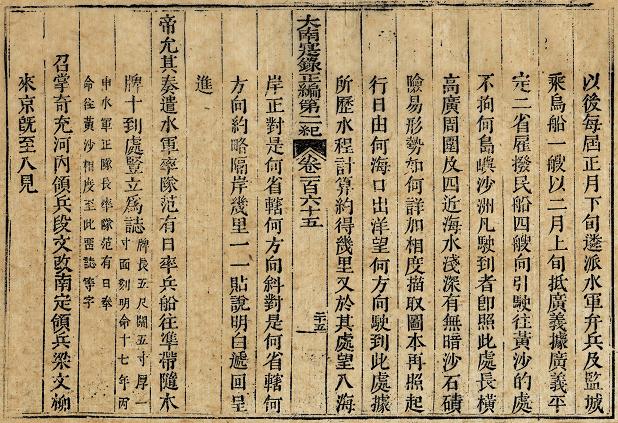 以後每屆正月下旬遴派水軍弁兵及監城
乘烏船一艘以二月上旬抵廣義據廣義平
定二省雇撥民船四艘向引駛往黃沙的處
不拘何島嶼沙洲凡駛到者卽照此處長橫
高廣周圍及四近海水淺深有無暗沙石磧
險易形勢如何詳加相度描取圖本再照起
行日由何海口出洋望何方向駛到此處據
所歷水程計算約得幾里又於其處望入海
大南寔錄正編第二紀 卷一百六十五 二五
岸正對是何省轄何方向斜對是何省轄何
方向約略隔岸幾里一一貼說明白遞回呈
進
帝允其奏遣水軍率隊范有日率兵船往準帶隨木
牌十到處豎立爲誌 牌長五尺闊五寸厚一
寸面刻明命十七年丙
申水軍正隊長率隊范有日奉
命往黃沙相度至此畱誌等字
召掌奇充河內領兵段文改南定領兵梁文柳
來京旣至入見